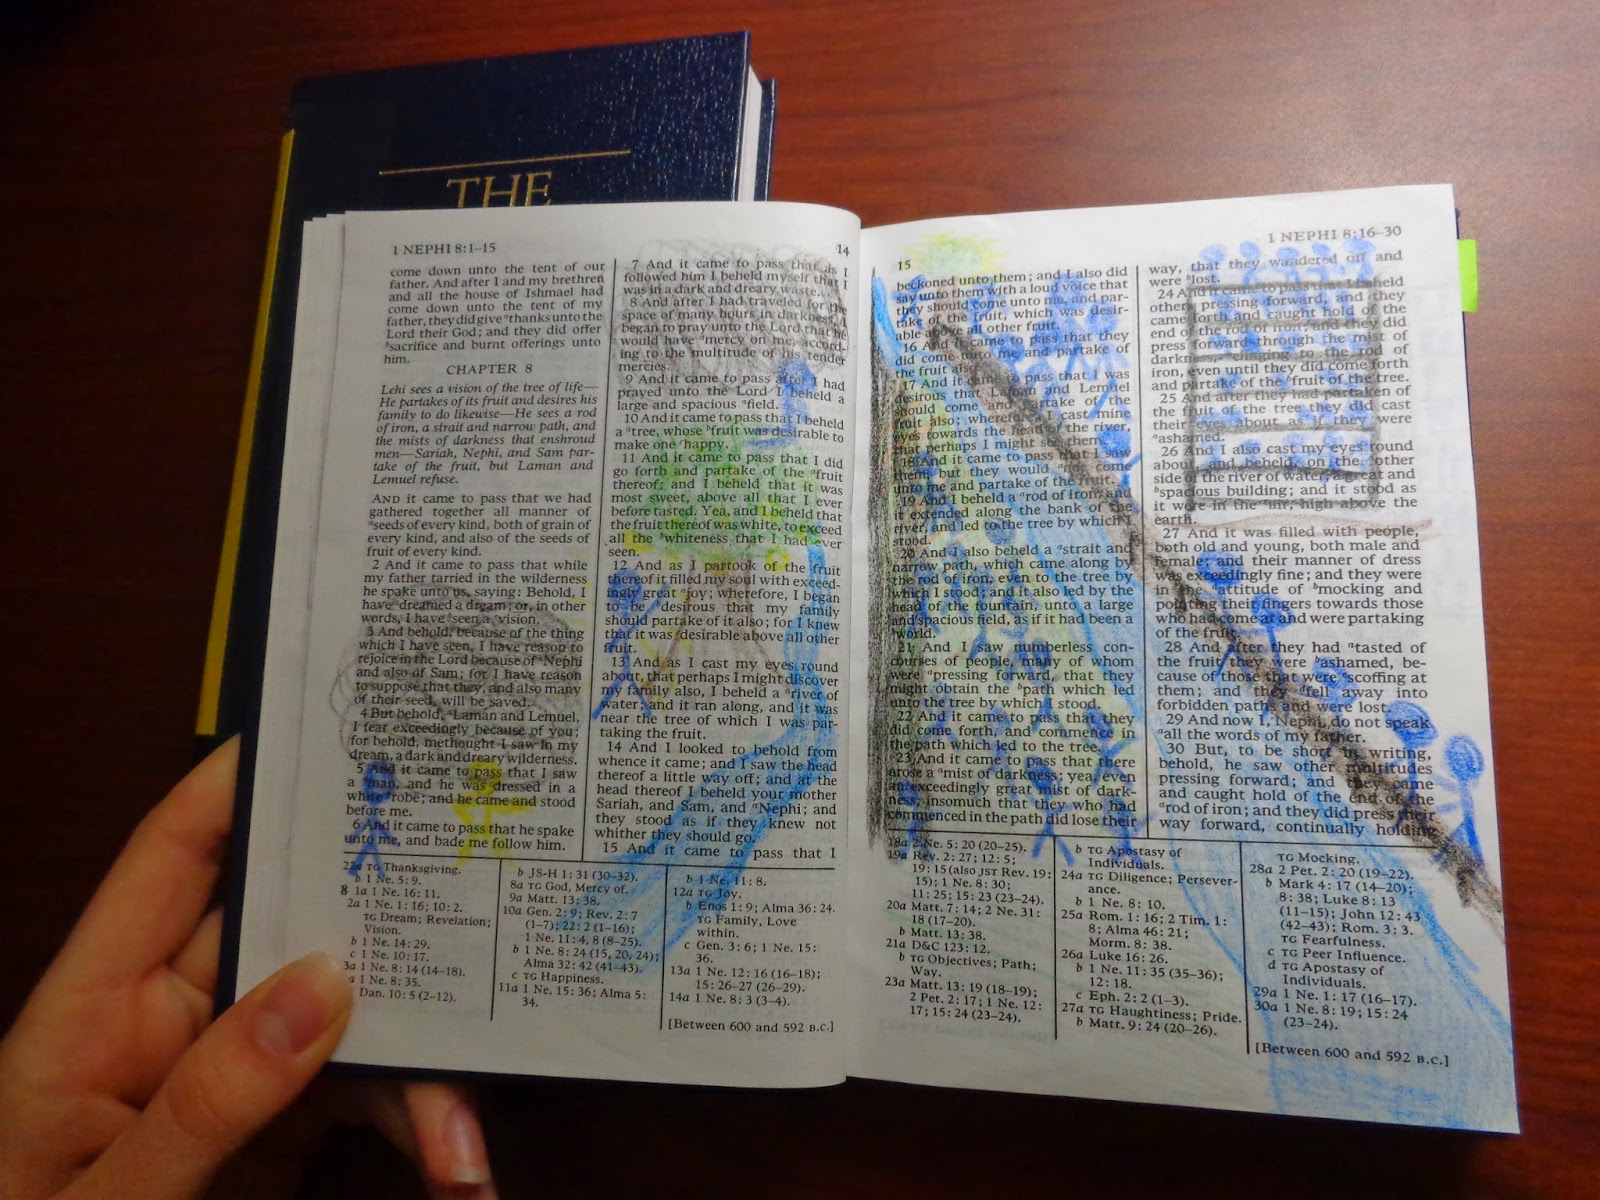 THE
1 NEPHI 8:1–15
14
come down unto the tent of our
father. And after I and my brethren
and all the house of Ishmael had
come down unto the tent of my
father, they did give ᵃthanks unto the
Lord their God; and they did offer
ᵇsacrifice and burnt offerings unto
him.
CHAPTER 8
Lehi sees a vision of the tree of life—
He partakes of its fruit and desires his
family to do likewise—He sees a rod
of iron, a strait and narrow path, and
the mists of darkness that enshroud
men—Sariah, Nephi, and Sam par-
take of the fruit, but Laman and
Lemuel refuse.
AND it came to pass that we had
gathered together all manner of
ᵃseeds of every kind, both of grain of
every kind, and also of the seeds of
fruit of every kind.
2 And it came to pass that while
my father tarried in the wilderness
he spake unto us, saying: Behold, I
have ᵃdreamed a dream; or, in other
words, I have ᵇseen a ᶜvision.
3 And behold, because of the thing
which I have seen, I have reason to
rejoice in the Lord because of ᵃNephi
and also of Sam; for I have reason
to suppose that they, and also many
of their seed, will be saved.
4 But behold, ᵃLaman and Lemuel,
I fear exceedingly because of you;
for behold, methought I saw in my
dream, a dark and dreary wilderness.
5 And it came to pass that I saw
a ᵃman, and he was dressed in a
white ᵇrobe; and he came and stood
before me.
6 And it came to pass that he spake
unto me, and bade me follow him.
7 And it came to pass that as I
followed him I beheld myself that I
was in a dark and dreary waste.
8 And after I had traveled for the
space of many hours in darkness, I
began to pray unto the Lord that he
would have ᵃmercy on me, accord-
ing to the multitude of his tender
mercies.
9 And it came to pass after I had
prayed unto the Lord I beheld a
large and spacious ᵃfield.
10 And it came to pass that I beheld
a ᵃtree, whose ᵇfruit was desirable to
make one ᶜhappy.
11 And it came to pass that I did
go forth and partake of the ᵃfruit
thereof; and I beheld that it was
most sweet, above all that I ever
before tasted. Yea, and I beheld that
the fruit thereof was white, to exceed
all the ᵇwhiteness that I had ever
seen.
12 And as I partook of the fruit
thereof it filled my soul with exceed-
ingly great ᵃjoy; wherefore, I began
to be ᵇdesirous that my family
should partake of it also; for I knew
that it was ᶜdesirable above all other
fruit.
13 And as I cast my eyes round
about, that perhaps I might discover
my family also, I beheld a ᵃriver of
water; and it ran along, and it was
near the tree of which I was par-
taking the fruit.
14 And I looked to behold from
whence it came; and I saw the head
thereof a little way off; and at the
head thereof I beheld your mother
Sariah, and Sam, and ᵃNephi; and
they stood as if they knew not
whither they should go.
15 And it came to pass that I
22a TG Thanksgiving.
b 1 Ne. 5:9.
8 1a 1 Ne. 16:11.
2a 1 Ne. 1:16; 10:2.
TG Dream; Revelation;
Vision.
b 1 Ne. 14:29.
c 1 Ne. 10:17.
3a 1 Ne. 8:14 (14–18).
a 1 Ne. 8:35.
Dan. 10:5 (2–12).
b JS-H 1:31 (30–32).
8a TG God, Mercy of.
9a Matt. 13:38.
10a Gen. 2:9; Rev. 2:7
(1–7); 22:2 (1–16);
1 Ne. 11:4, 8 (8–25).
b 1 Ne. 8:24 (15, 20, 24);
Alma 32:42 (41–43).
c TG Happiness.
11a 1 Ne. 15:36; Alma 5:
34.
b 1 Ne. 11:8.
12a TG Joy.
b Enos 1:9; Alma 36:24.
TG Family, Love
within.
c Gen. 3:6; 1 Ne. 15:
36.
13a 1 Ne. 12:16 (16–18);
15:26–27 (26–29).
14a 1 Ne. 8:3 (3–4).
[Between 600 and 592 B.C.]
15
1 NEPHI 8:16–30
beckoned unto them; and I also did
say unto them with a loud voice that
they should come unto me, and par-
take of the fruit, which was desir-
able above all other fruit.
16 And it came to pass that they
did come unto me and partake of
the fruit also.
17 And it came to pass that I was
desirous that Laman and Lemuel
should come and partake of the
fruit also; wherefore, I cast mine
eyes towards the head of the river,
that perhaps I might see them.
18 And it came to pass that I saw
them, but they would ᵃnot come
unto me and partake of the fruit.
19 And I beheld a ᵃrod of iron, and
it extended along the bank of the
river, and led to the tree by which I
stood.
20 And I also beheld a ᵃstrait and
narrow path, which came along by
the rod of iron, even to the tree by
which I stood; and it also led by the
head of the fountain, unto a large
and ᵇspacious field, as if it had been a
world.
21 And I saw numberless con-
courses of people, many of whom
were ᵃpressing forward, that they
might obtain the ᵇpath which led
unto the tree by which I stood.
22 And it came to pass that they
did come forth, and commence in
the path which led to the tree.
23 And it came to pass that there
arose a ᵃmist of darkness; yea, even
an exceedingly great mist of dark-
ness, insomuch that they who had
commenced in the path did lose their
way, that they wandered off and
were ᵇlost.
24 And it came to pass that I beheld
others pressing forward, and they
came forth and caught hold of the
end of the rod of iron; and they did
press forward through the mist of
darkness, ᵃclinging to the rod of
iron, even until they did come forth
and partake of the ᵇfruit of the tree.
25 And after they had partaken of
the fruit of the tree they did cast
their eyes about as if they were
ᵃashamed.
26 And I also cast my eyes round
about, and beheld, on the ᵃother
side of the river of water, a great and
ᵇspacious building; and it stood as
it were in the ᶜair, high above the
earth.
27 And it was filled with people,
both old and young, both male and
female; and their manner of dress
was exceedingly fine; and they were
in the ᵃattitude of ᵇmocking and
pointing their fingers towards those
who had come at and were partaking
of the fruit.
28 And after they had ᵃtasted of
the fruit they were ᵇashamed, be-
cause of those that were ᶜscoffing at
them; and they ᵈfell away into
forbidden paths and were lost.
29 And now I, Nephi, do not speak
ᵃall the words of my father.
30 But, to be short in writing,
behold, he saw other multitudes
pressing forward; and they came
and caught hold of the end of the
ᵃrod of iron; and they did press their
way forward, continually holding
18a 2 Ne. 5:20 (20–25).
19a Rev. 2:27; 12:5;
19:15 (also JST Rev. 19:
15); 1 Ne. 8:30;
11:25; 15:23 (23–24).
20a Matt. 7:14; 2 Ne. 31:
18 (17–20).
b Matt. 13:38.
21a D&C 123:12.
b TG Objectives; Path;
Way.
23a Matt. 13:19 (18–19);
2 Pet. 2:17; 1 Ne. 12:
17; 15:24 (23–24).
b TG Apostasy of
Individuals.
24a TG Diligence; Persever-
ance.
b 1 Ne. 8:10.
25a Rom. 1:16; 2 Tim. 1:
8; Alma 46:21;
Morm. 8:38.
26a Luke 16:26.
b 1 Ne. 11:35 (35–36);
12:18.
c Eph. 2:2 (1–3).
27a TG Haughtiness; Pride.
b Matt. 9:24 (20–26).
TG Mocking.
28a 2 Pet. 2:20 (19–22).
b Mark 4:17 (14–20);
8:38; Luke 8:13
(11–15); John 12:43
(42–43); Rom. 3:3.
TG Fearfulness.
c TG Peer Influence.
d TG Apostasy of
Individuals.
29a 1 Ne. 1:17 (16–17).
30a 1 Ne. 8:19; 15:24
(23–24).
[Between 600 and 592 B.C.]